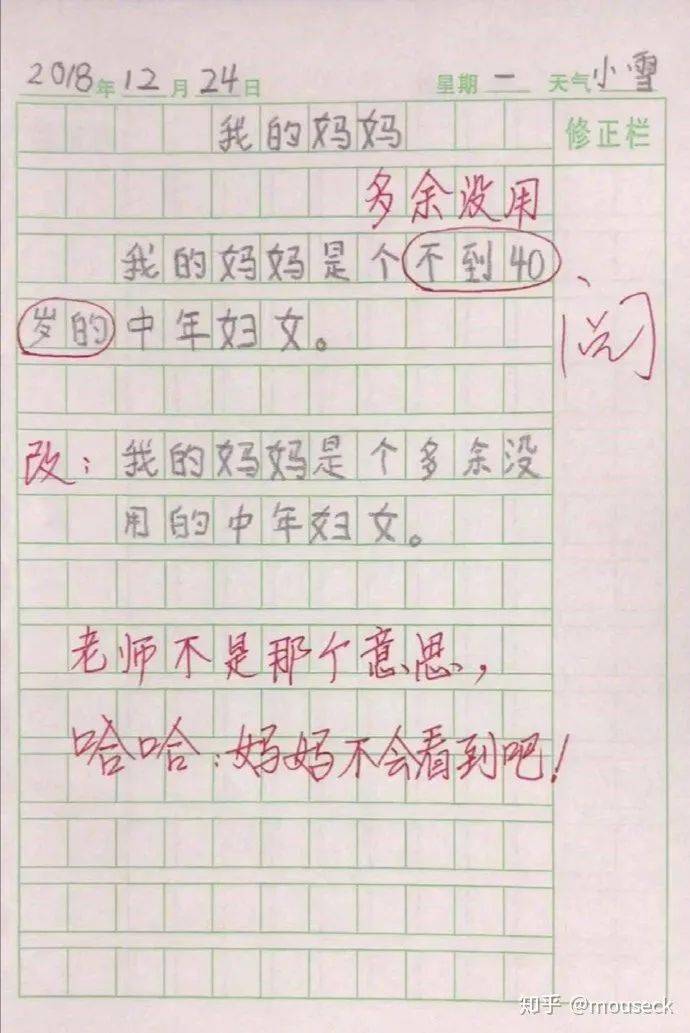 2018年12月24日 星期一 天气小雪
我的妈妈 修正栏
多余没用
我的妈妈是个不到40
岁的中年妇女。
阅
改：我的妈妈是个多余没
用的中年妇女。
老师不是那个意思，
哈哈：妈妈不会看到吧！
知乎 @mouseck